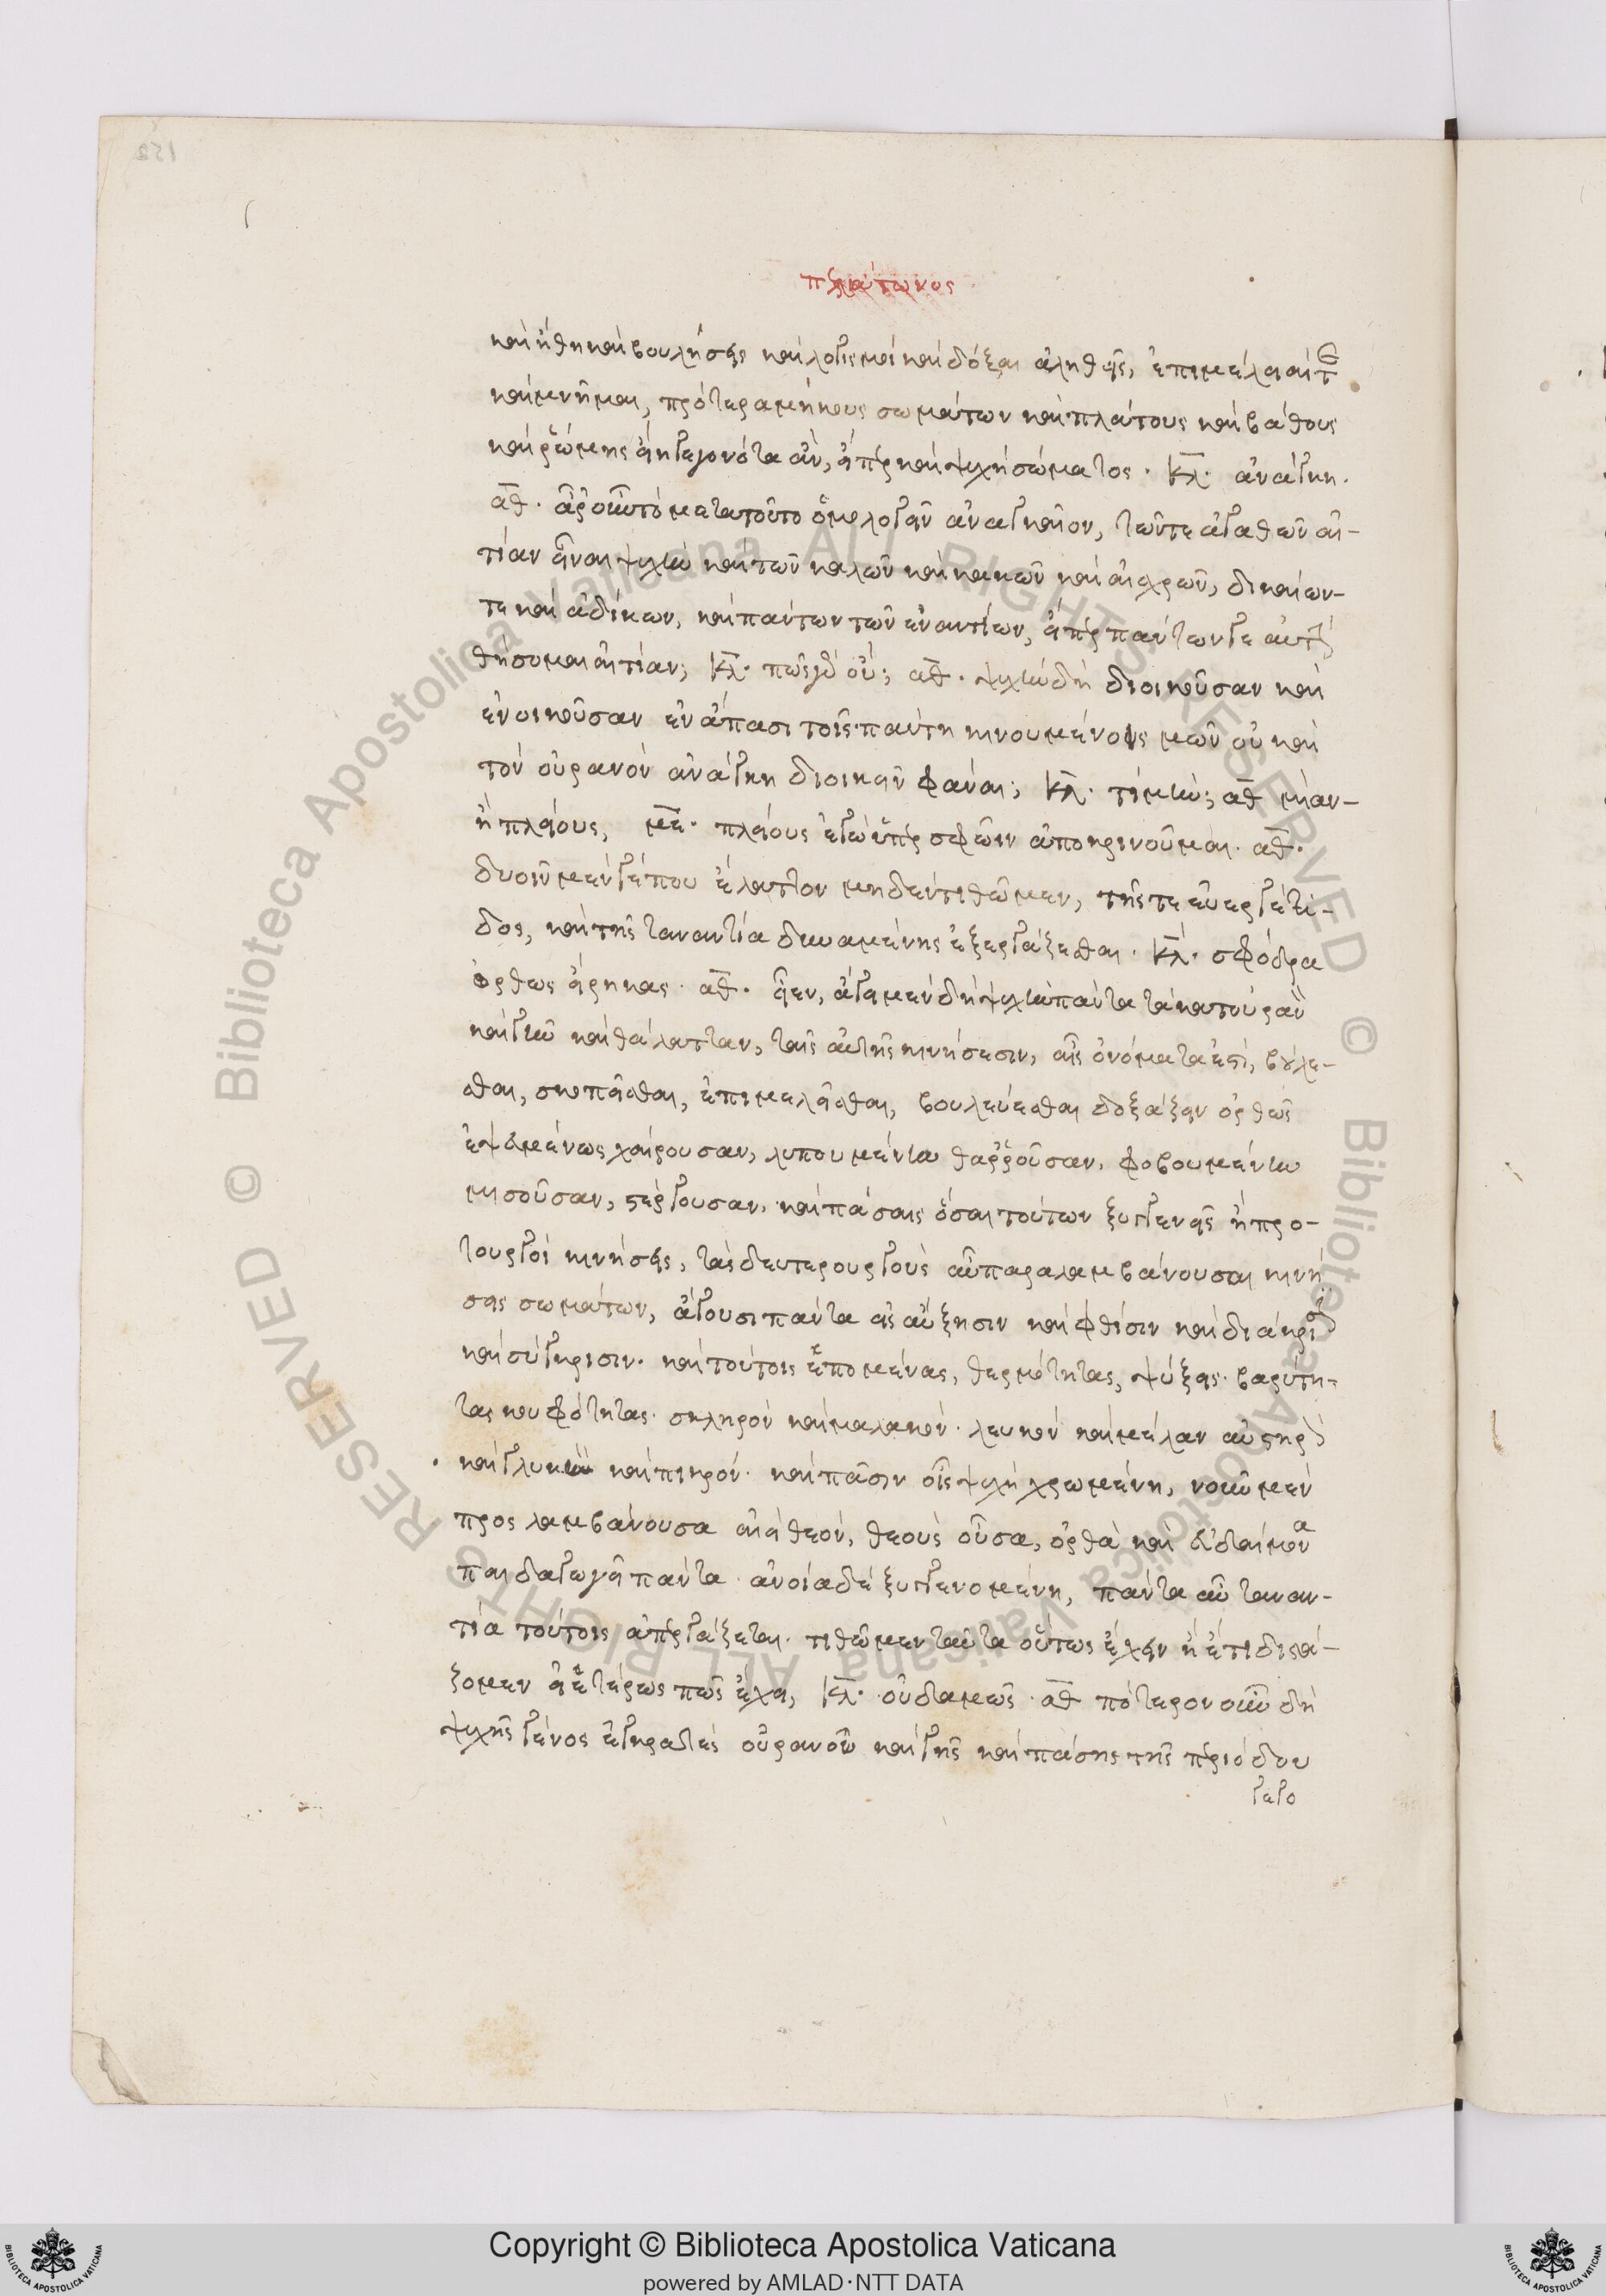 πλάτωνος
καὶ ἤθη καὶ βουλήσεις καὶ λογισμοὶ καὶ δόξαι ἀληθεῖς, ἐπιμέλειαί τε
καὶ μνῆμαι, πρότερα μήκους σωμάτων καὶ πλάτους καὶ βάθους
καὶ ῥώμης εἴη γεγονότα ἂν, εἴπερ καὶ ψυχὴ σώματος. κλ. ἀνάγκη.
αθ. ἆρ' οὖν τὸ μετὰ τοῦτο ὁμολογεῖν ἀναγκαῖον, τῶν τε ἀγαθῶν αἰ-
τίαν εἶναι ψυχὴν καὶ τῶν καλῶν καὶ κακῶν καὶ αἰσχρῶν, δικαίων-
τε καὶ ἀδίκων, καὶ πάντων τῶν ἐναντίων, εἴπερ πάντων γε αὐτὴν
θήσομαι αἰτίαν; κλ. πῶς γὰρ οὔ; αθ. ψυχὴν δὴ διοικοῦσαν καὶ
ἐνοικοῦσαν ἐν ἅπασι τοῖς πάντη κινουμένοις μῶν οὐ καὶ
τὸν οὐρανὸν ἀνάγκη διοικεῖν φάναι; κλ. τί μήν; αθ μίαν-
ἢ πλείους, με. πλείους ἐγὼ ὑπὲρ σφῶιν ἀποκρινοῦμαι. αθ.
δυοῖν μέν γέ που ἔλαττον μηδὲν τιθῶμεν, τῆς τε εὐεργέτι-
δος, καὶ τῆς τἀναντία δυναμένης ἐξεργάζεσθαι. κλ. σφόδρα
ὀρθῶς εἴρηκας. αθ. εἶεν, ἄγει μὲν δὴ ψυχὴ πάντα τὰ κατ' οὐρανὸν
καὶ γῆν καὶ θάλατταν, ταῖς αὑτῆς κινήσεσιν, αἷς ὀνόματά ἐστι, βούλε-
σθαι, σκοπεῖσθαι, ἐπιμελεῖσθαι, βουλεύεσθαι δοξάζειν ὀρθῶς
ἐψευσμένως χαίρουσαν, λυπουμένην θαρροῦσαν, φοβουμένην
μισοῦσαν, στέργουσαν, καὶ πάσαις ὅσαι τούτων ξυγγενεῖς ἢ πρω-
τουργοὶ κινήσεις, τὰς δευτερουργοὺς αὖ παραλαμβάνουσαι κινή
σεις σωμάτων, ἄγουσι πάντα εἰς αὔξησιν καὶ φθίσιν καὶ διάκρισιν
καὶ σύγκρισιν. καὶ τούτοις ἑπομένας, θερμότητας, ψύξεις. βαρύτη-
τας κουφότητας. σκληρὸν καὶ μαλακόν. λευκὸν καὶ μέλαν αὐστηρὸν
καὶ γλυκὺ καὶ πικρόν. καὶ πᾶσιν οἷς ψυχὴ χρωμένη, νοῦν μὲν
προς λαμβάνουσα ἀεὶ θεόν, θεοὺς οὖσα, ὀρθὰ καὶ εὐδαίμονα
παιδαγωγεῖ πάντα. ἀνοία δὲ ξυγγενομένη, πάντα αὖ τἀναν-
τία τούτοις ἀπεργάζεται. τιθῶμεν ταῦτα οὕτως ἔχειν ἢ ἔτι διστά-
ζομεν εἰ ἑτέρως πως ἔχει, κλ. οὐδαμῶς. αθ πότερον οὖν δὴ
ψυχῆς γένος ἐγκρατὲς οὐρανοῦ καὶ γῆς καὶ πάσης τῆς περιόδου
γεγο